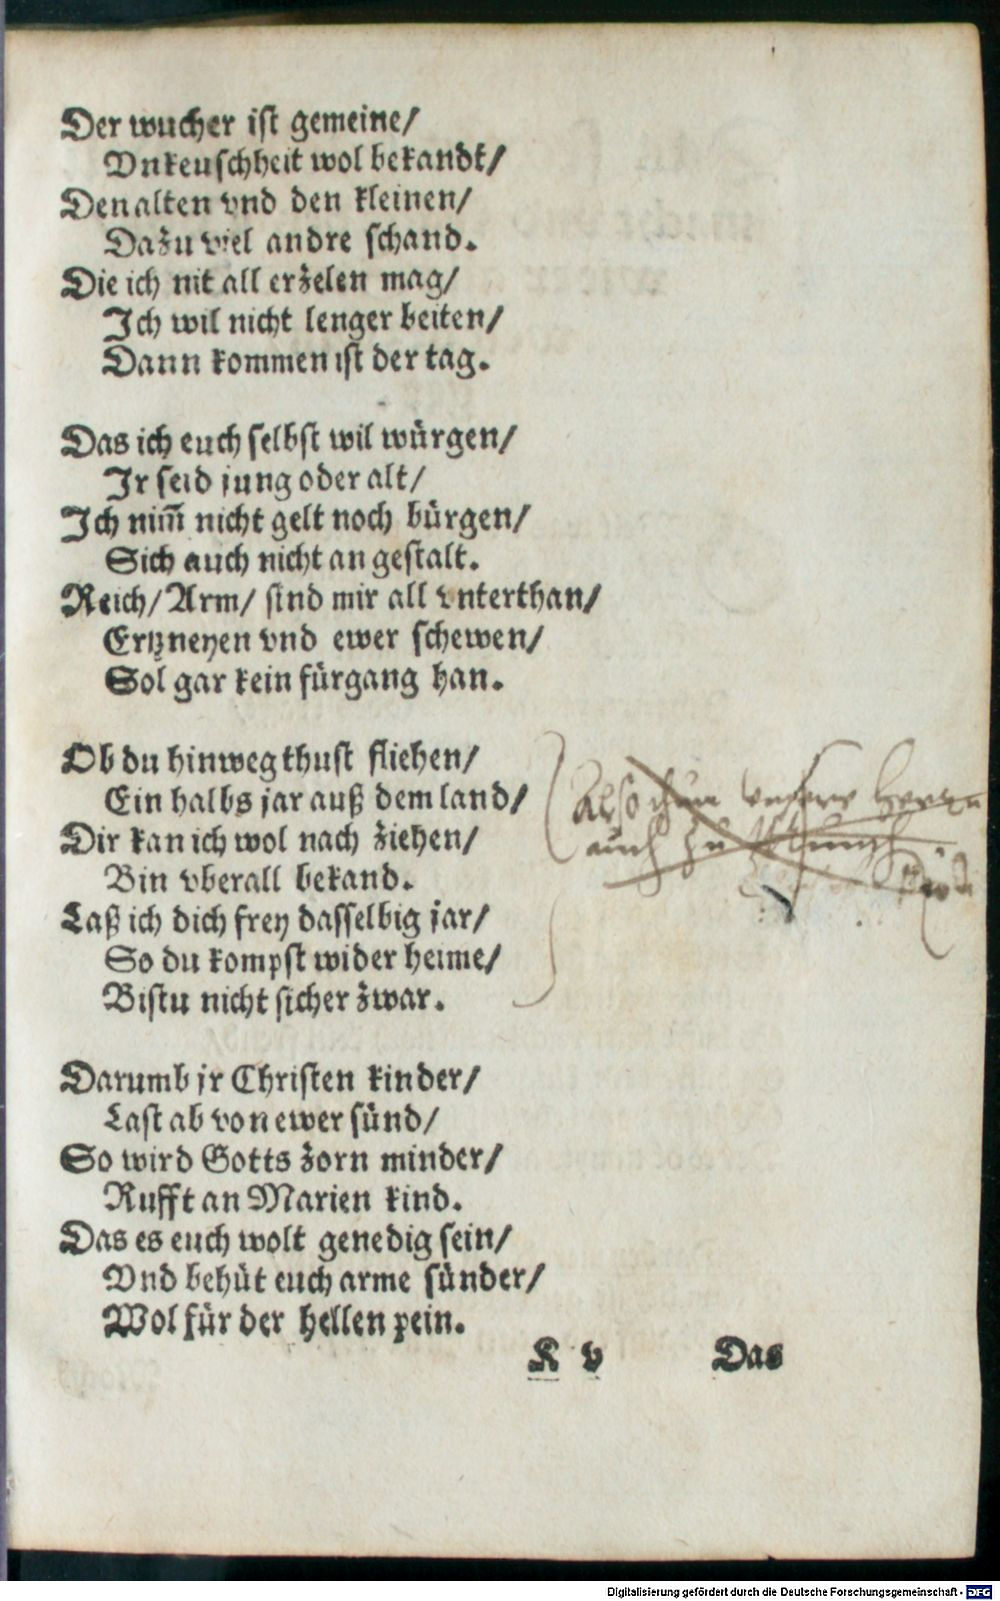 Der wucher ist gemeine/
Vnkeuschheit wol bekandt/
Den alten vnd den kleinen/
Dazu viel andre schand.
Die ich nit all erzelen mag/
Ich wil nicht lenger beiten/
Dann kommen ist der tag.
Das ich euch selbst wil würgen/
Ir seid jung oder alt/
Ich nim̃ nicht gelt noch bürgen/
Sich auch nicht an gestalt.
Reich/ Arm/ sind mir all vnterthan/
Ertzneyen vnd ewer schewen/
Sol gar kein fürgang han.
Ob du hinweg thust fliehen/
Ein halbs jar auß dem land/
Dir kan ich wol nach ziehen/
Bin vberall bekand.
Laß ich dich frey dasselbig jar/
So du kompst wider heime/
Bistu nicht sicher zwar.
Also thun unsere Herrn
auch zu
Darumb jr Christen kinder/
Last ab von ewer sünd/
So wird Gotts zorn minder/
Rufft an Marien kind.
Das es euch wolt genedig sein/
Vnd behüt euch arme sünder/
Wol für der hellen pein.
K v Das
Digitalisierung gefördert durch die Deutsche Forschungsgemeinschaft - DFG